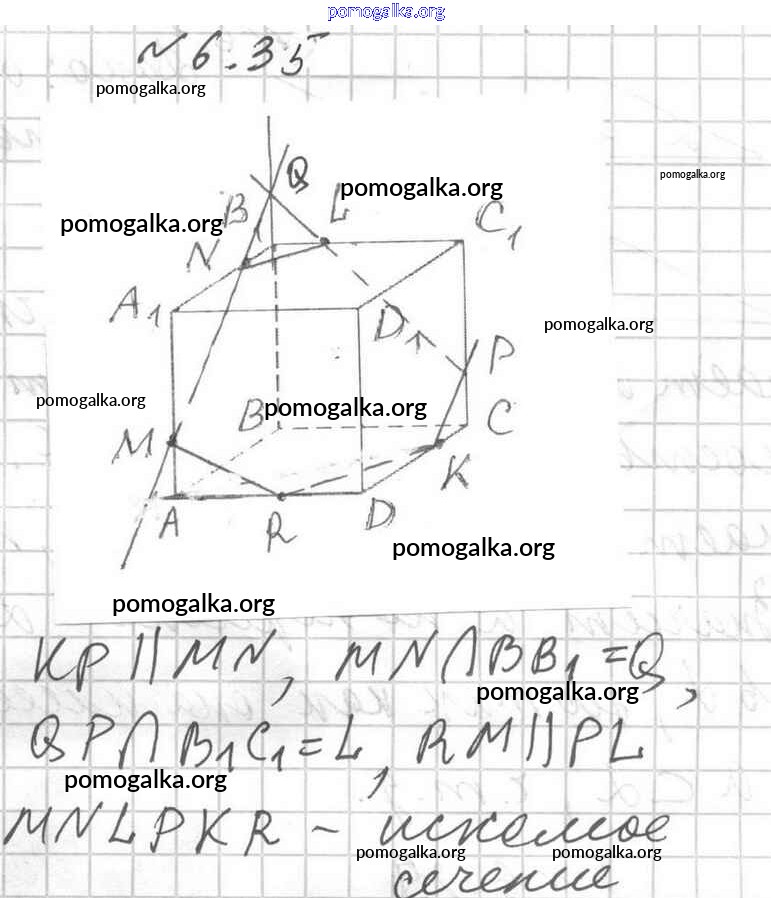 pomogalka.org
№6.35
pomogalka.org
pomogalka.org
Q
pomogalka.org
L
B
C1
pomogalka.org
N
A1
D1
pomogalka.org
P
pomogalka.org
B
pomogalka.org
C
M
K
A
R
D
pomogalka.org
pomogalka.org
KP || MN, MN ∩ BB1 = Q,
pomogalka.org
QP ∩ B1C1 = L, RM || PL
pomogalka.org
MNLPKR – искомое
pomogalka.org
pomogalka.org
сечение